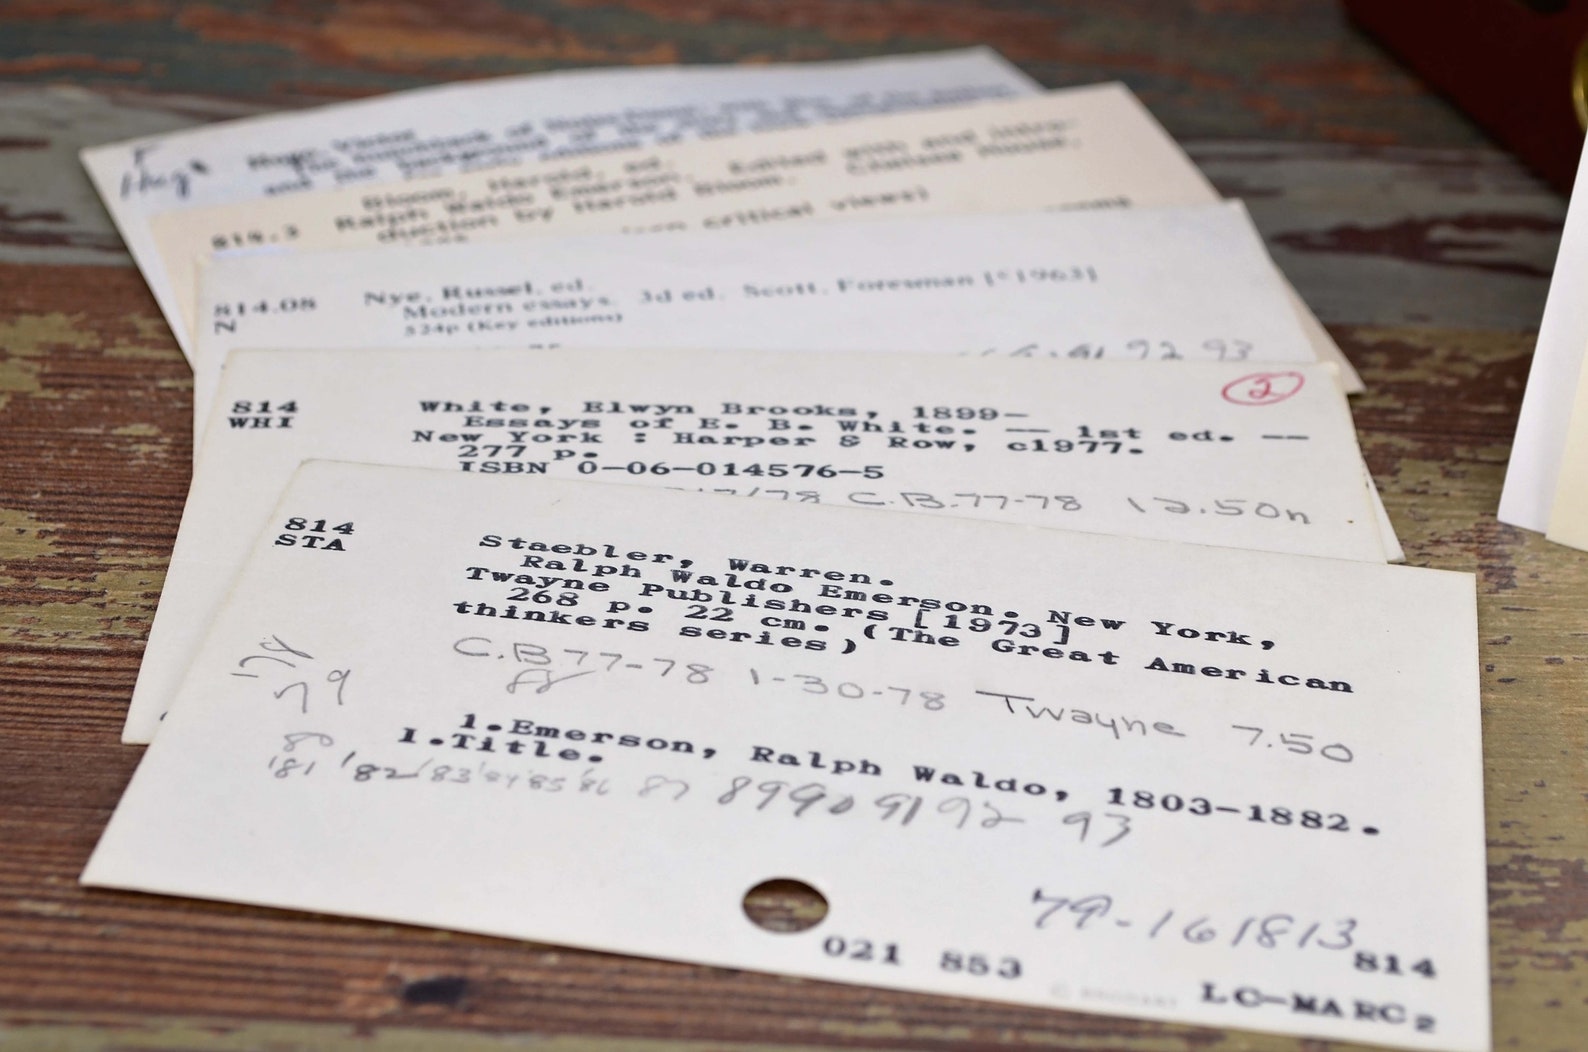 F
Hugo, Victor
814.3 Bloom, Harold, ed.
Ralph Waldo Emerson. Edited with and intro-
duction by Harold Bloom. Chelsea House,
critical views)
814.08 Nye, Russel, ed.
N Modern essays. 3d ed. Scott, Foresman [c1963]
524p (Key editions)
91 92 93
2
814 White, Elwyn Brooks, 1899-
WHI Essays of E. B. White. -- 1st ed. --
New York : Harper & Row, c1977.
277 p.
ISBN 0-06-014576-5
C.B.77-78 12.50n
814 Staebler, Warren.
STA Ralph Waldo Emerson. New York,
Twayne Publishers [1973]
268 p. 22 cm. (The Great American
thinkers series)
'78 C.B 77-78 1-30-78 Twayne 7.50
79 88
1.Emerson, Ralph Waldo, 1803-1882.
80 I.Title.
'81 '82 '83 '84 '85 '86 87 89 90 91 92 93
79-161813
021 853 814
LC-MARC2